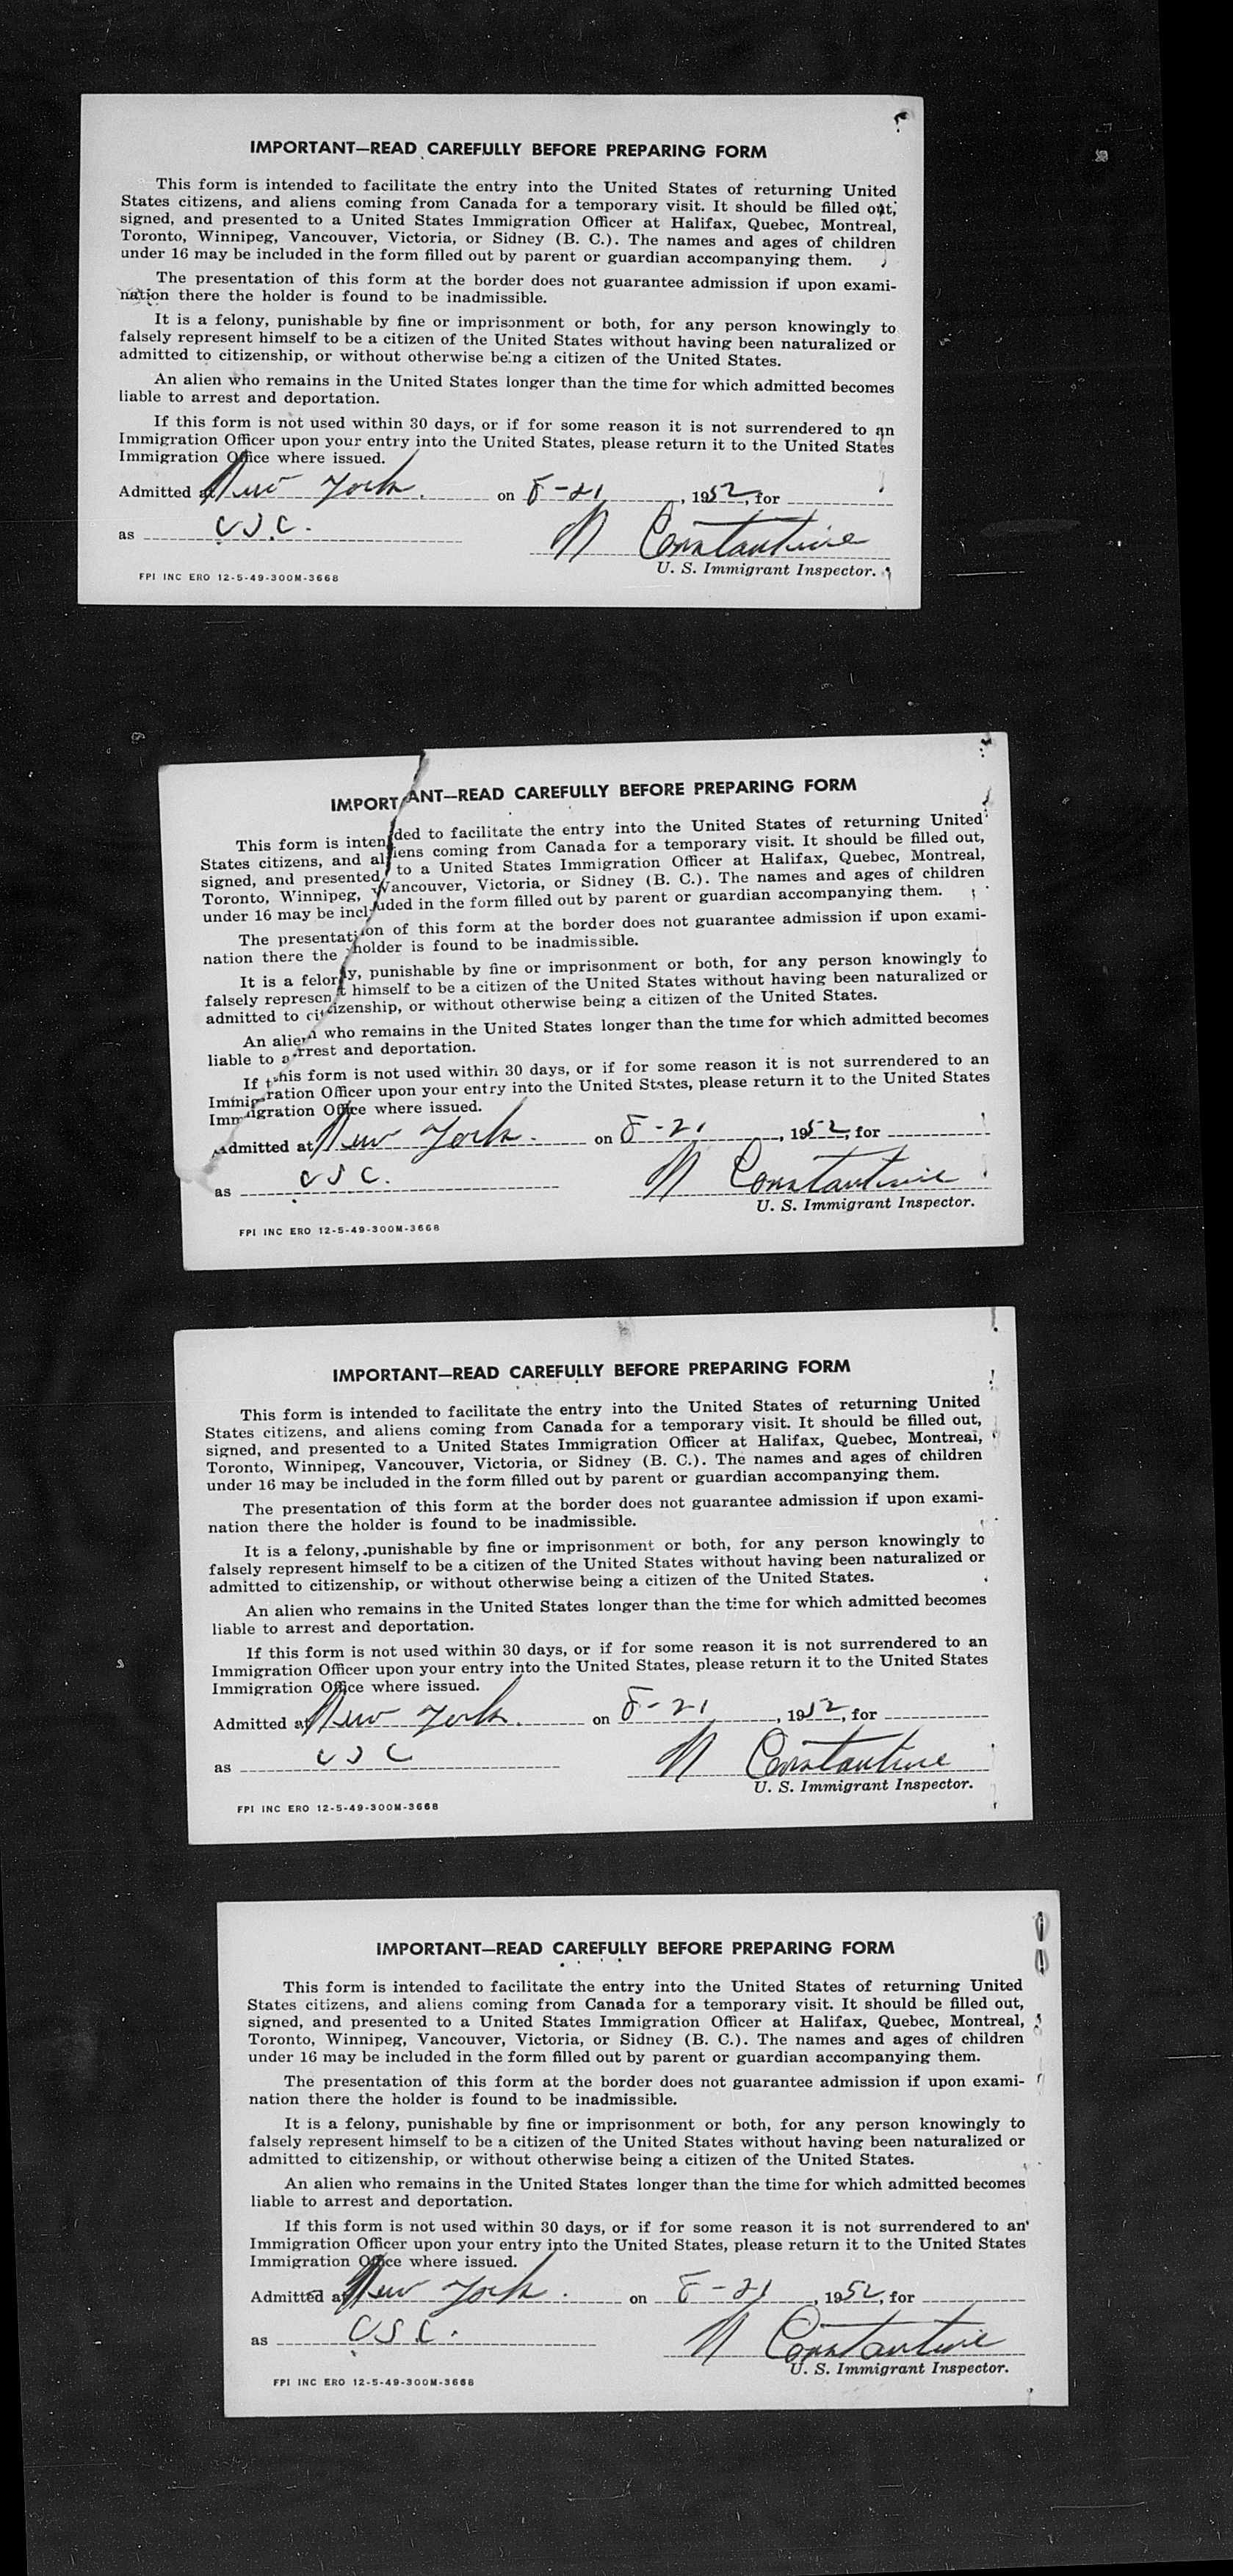 IMPORTANT—READ CAREFULLY BEFORE PREPARING FORM
This form is intended to facilitate the entry into the United States of returning United
States citizens, and aliens coming from Canada for a temporary visit. It should be filled out,
signed, and presented to a United States Immigration Officer at Halifax, Quebec, Montreal,
Toronto, Winnipeg, Vancouver, Victoria, or Sidney (B. C.). The names and ages of children
under 16 may be included in the form filled out by parent or guardian accompanying them.
The presentation of this form at the border does not guarantee admission if upon exami-
nation there the holder is found to be inadmissible.
It is a felony, punishable by fine or imprisonment or both, for any person knowingly to
falsely represent himself to be a citizen of the United States without having been naturalized or
admitted to citizenship, or without otherwise being a citizen of the United States.
An alien who remains in the United States longer than the time for which admitted becomes
liable to arrest and deportation.
If this form is not used within 30 days, or if for some reason it is not surrendered to an
Immigration Officer upon your entry into the United States, please return it to the United States
Immigration Office where issued.
Admitted at New York. on 8-21, 1952, for
as USC. N Constantine
U. S. Immigrant Inspector.
FPI INC ERO 12-5-49-300M-3668
IMPORTANT—READ CAREFULLY BEFORE PREPARING FORM
This form is intended to facilitate the entry into the United States of returning United
States citizens, and aliens coming from Canada for a temporary visit. It should be filled out,
signed, and presented to a United States Immigration Officer at Halifax, Quebec, Montreal,
Toronto, Winnipeg, Vancouver, Victoria, or Sidney (B. C.). The names and ages of children
under 16 may be included in the form filled out by parent or guardian accompanying them.
The presentation of this form at the border does not guarantee admission if upon exami-
nation there the holder is found to be inadmissible.
It is a felony, punishable by fine or imprisonment or both, for any person knowingly to
falsely represent himself to be a citizen of the United States without having been naturalized or
admitted to citizenship, or without otherwise being a citizen of the United States.
An alien who remains in the United States longer than the time for which admitted becomes
liable to arrest and deportation.
If this form is not used within 30 days, or if for some reason it is not surrendered to an
Immigration Officer upon your entry into the United States, please return it to the United States
Immigration Office where issued.
Admitted at New York. on 8-21, 1952, for
as USC. N Constantine
U. S. Immigrant Inspector.
FPI INC ERO 12-5-49-300M-3668
IMPORTANT—READ CAREFULLY BEFORE PREPARING FORM
This form is intended to facilitate the entry into the United States of returning United
States citizens, and aliens coming from Canada for a temporary visit. It should be filled out,
signed, and presented to a United States Immigration Officer at Halifax, Quebec, Montreal,
Toronto, Winnipeg, Vancouver, Victoria, or Sidney (B. C.). The names and ages of children
under 16 may be included in the form filled out by parent or guardian accompanying them.
The presentation of this form at the border does not guarantee admission if upon exami-
nation there the holder is found to be inadmissible.
It is a felony, punishable by fine or imprisonment or both, for any person knowingly to
falsely represent himself to be a citizen of the United States without having been naturalized or
admitted to citizenship, or without otherwise being a citizen of the United States.
An alien who remains in the United States longer than the time for which admitted becomes
liable to arrest and deportation.
If this form is not used within 30 days, or if for some reason it is not surrendered to an
Immigration Officer upon your entry into the United States, please return it to the United States
Immigration Office where issued.
Admitted at New York. on 8-21, 1952, for
as USC N Constantine
U. S. Immigrant Inspector.
FPI INC ERO 12-5-49-300M-3668
IMPORTANT—READ CAREFULLY BEFORE PREPARING FORM
This form is intended to facilitate the entry into the United States of returning United
States citizens, and aliens coming from Canada for a temporary visit. It should be filled out,
signed, and presented to a United States Immigration Officer at Halifax, Quebec, Montreal,
Toronto, Winnipeg, Vancouver, Victoria, or Sidney (B. C.). The names and ages of children
under 16 may be included in the form filled out by parent or guardian accompanying them.
The presentation of this form at the border does not guarantee admission if upon exami-
nation there the holder is found to be inadmissible.
It is a felony, punishable by fine or imprisonment or both, for any person knowingly to
falsely represent himself to be a citizen of the United States without having been naturalized or
admitted to citizenship, or without otherwise being a citizen of the United States.
An alien who remains in the United States longer than the time for which admitted becomes
liable to arrest and deportation.
If this form is not used within 30 days, or if for some reason it is not surrendered to an
Immigration Officer upon your entry into the United States, please return it to the United States
Immigration Office where issued.
Admitted at New York. on 8-21, 1952, for
as USC. N Constantine
U. S. Immigrant Inspector.
FPI INC ERO 12-5-49-300M-3668